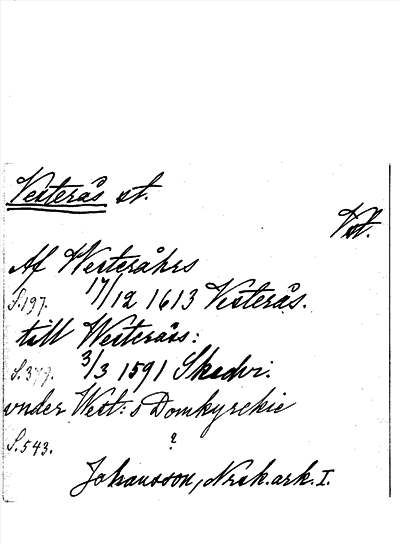 Vesterås st.
Vst.
Af Westeråhrs
S.197. 17/12 1613 Vesterås.
till Westeråss:
S.377. 3/3 1591 Skedvi.
vnder West: s Domkyrckie
S.543. ?
Johansson, Nrsk.ark. I.